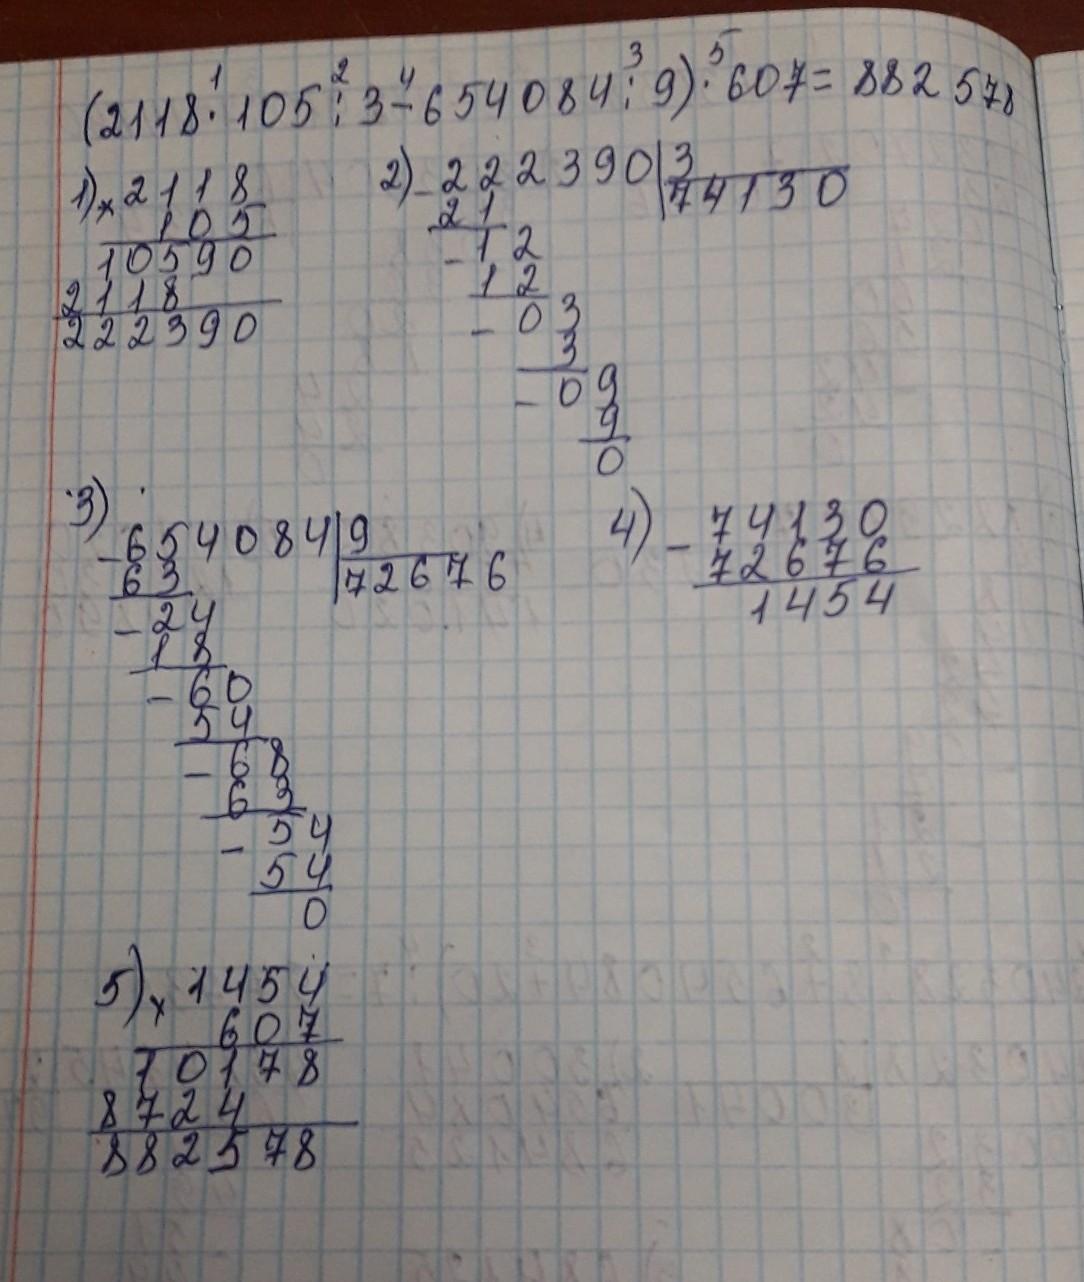 1 2 4 3 5
(2118·105:3-654084:9)·607=882578
1) × 2118
105
10590
2118
222390
2) - 222390 | 3
21 | 74130
- 12
12
- 03
3
- 09
9
0
3)
- 654084 | 9
63 | 72676
- 24
18
- 60
54
- 68
63
- 54
54
0
4) - 74130
72676
1454
5) × 1454
607
10178
8724
882578